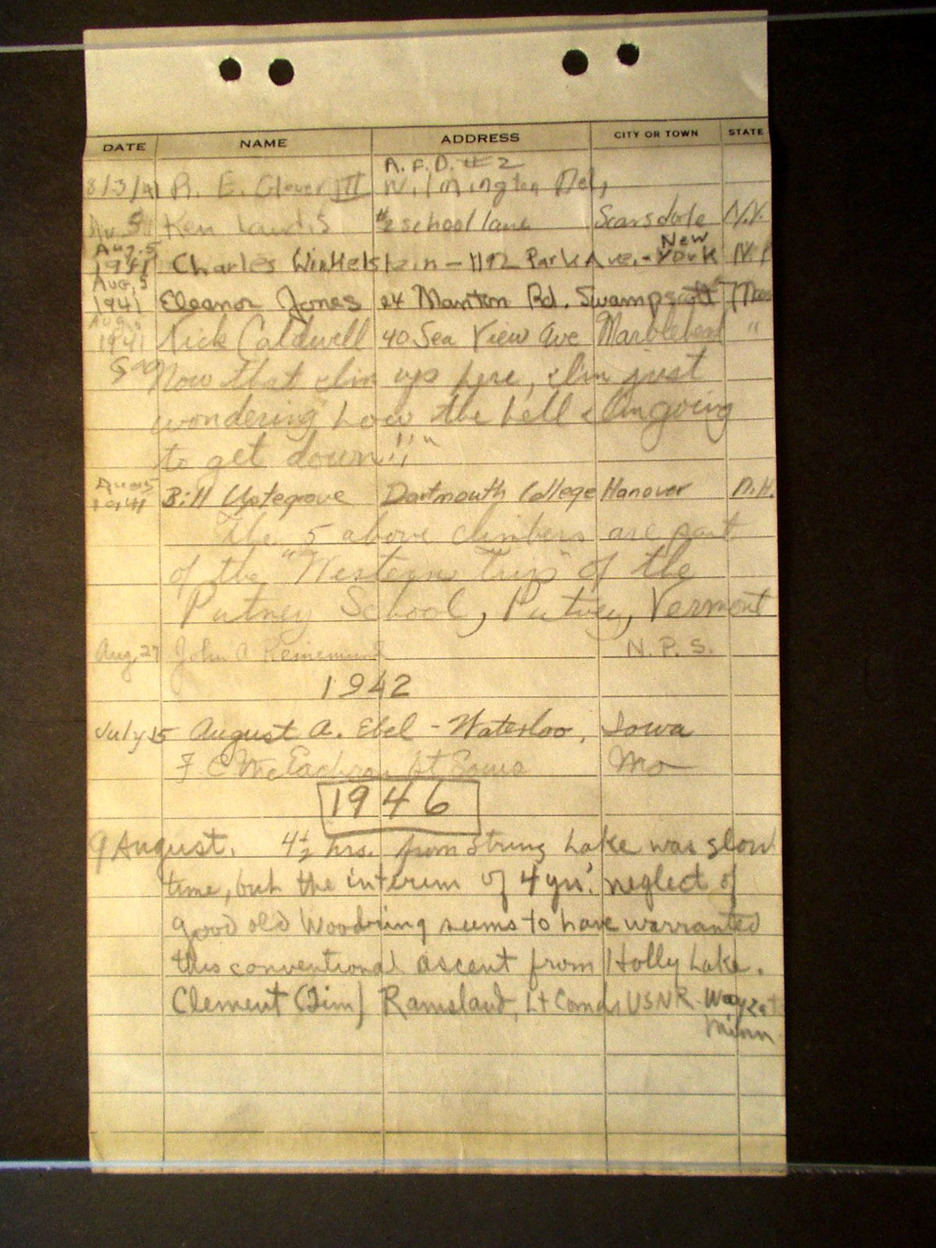 DATE NAME ADDRESS CITY OR TOWN STATE
R.F.D. #2
8/3/41 R. E. Clover III Wilmington Del,
Aug 5 Ken Landis #2 school lane Scarsdale N.Y.
Aug. 5 New
1941 Charles Winkelstein - 1192 Park Ave. - York N.Y
Aug, 5
1941 Eleanor Jones 24 Manton Rd. Swampscott Mass
Aug.
1941 Nick Caldwell 40 Sea View Ave Marblehead "
Now that I'm up here, I'm just
wondering how the hell I'm going
to get down!!!"
Aug 5
1941 Bill Uptegrove Dartmouth College Hanover N.H.
The 5 above climbers are part
of the "Western Trip" of the
Putney School, Putney, Vermont
Aug. 27 John A N.P.S.
1942
July 15 August A. Ebel - Waterloo, Iowa
F. C. McEachron St Louis Mo
1946
9 August. 4½ hrs. from String Lake was slow
time, but the interim of 4 yrs' neglect of
good old Woodring seems to have warranted
this conventional ascent from Holly Lake.
Clement (Jim) Ramsland, Lt Comdr USNR - Wayzata
Minn